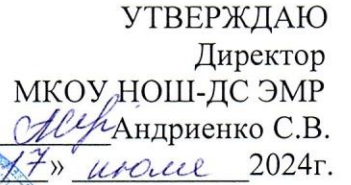 УТВЕРЖДАЮ
Директор
МКОУ НОШ-ДС ЭМР
Андриенко С.В.
17» июля 2024г.